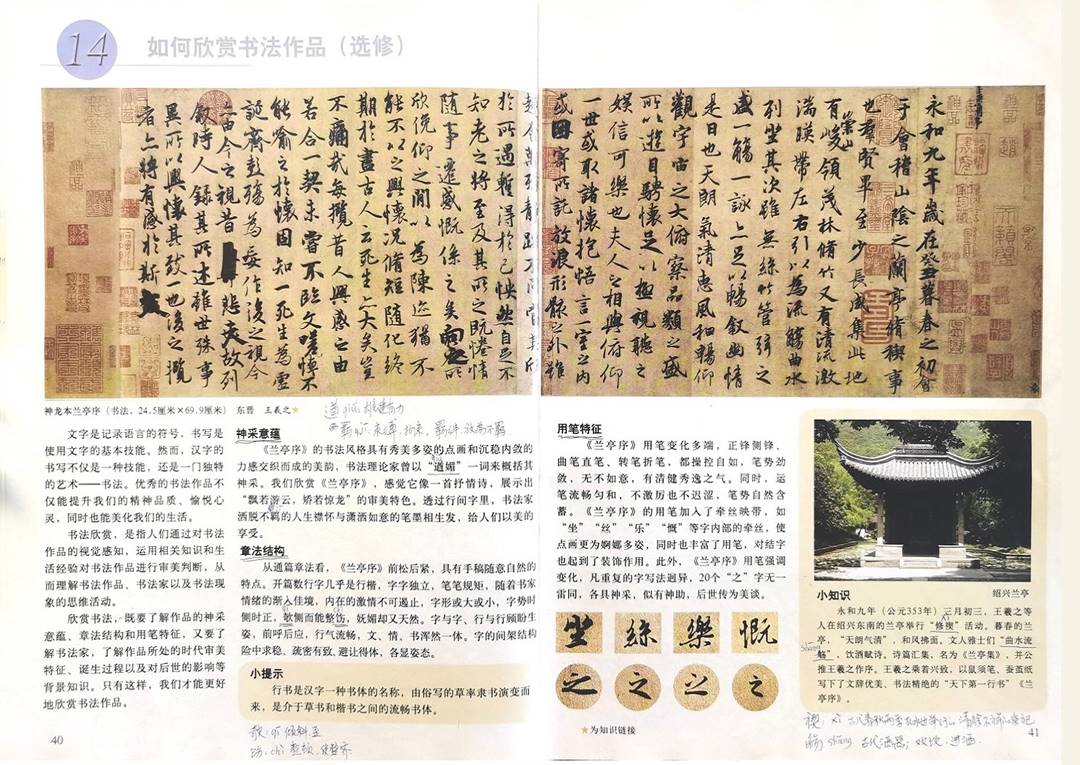 14
如何欣赏书法作品（选修）
永和九年歲在癸丑暮春之初會
于會稽山陰之蘭亭脩稧事
也羣賢畢至少長咸集此地
有崇山峻領茂林脩竹又有清流激
湍暎帶左右引以為流觴曲水
列坐其次雖無絲竹管弦之
盛一觴一詠亦足以暢敘幽情
是日也天朗氣清惠風和暢仰
觀宇宙之大俯察品類之盛
所以遊目騁懷足以極視聽之
娛信可樂也夫人之相與俯仰
一世或取諸懷抱悟言一室之內
或因寄所託放浪形骸之外雖
於所遇暫得於己怏然自足不
知老之將至及其所之既惓情
隨事遷感慨係之矣向之所
欣俛仰之間以為陳迹猶不
能不以之興懷況脩短隨化終
期於盡古人云死生亦大矣豈
不痛哉每攬昔人興感之由
若合一契未嘗不臨文嗟悼不
能喻之於懷固知一死生為虛
誕齊彭殤為妄作後之視今
亦由今之視昔悲夫故列
敘時人錄其所述雖世殊事
異所以興懷其致一也後之攬
者亦將有感於斯文
神龙本兰亭序（书法，24.5厘米×69.9厘米） 东晋 王羲之★
文字是记录语言的符号，书写是
使用文字的基本技能。然而，汉字的
书写不仅是一种技能，还是一门独特
的艺术——书法。优秀的书法作品不
仅能提升我们的精神品质、愉悦心
灵，同时也能美化我们的生活。
书法欣赏，是指人们通过对书法
作品的视觉感知，运用相关知识和生
活经验对书法作品进行审美判断，从
而理解书法作品、书法家以及书法现
象的思维活动。
欣赏书法，既要了解作品的神采
意蕴、章法结构和用笔特征，又要了
解书法家，了解作品所处的时代审美
特征、诞生过程以及对后世的影响等
背景知识。只有这样，我们才能更好
地欣赏书法作品。
40
神采意蕴
《兰亭序》的书法风格具有秀美多姿的点画和沉稳内敛的
力感交织而成的美韵，书法理论家曾以“遒媚”一词来概括其
神采。我们欣赏《兰亭序》，感觉它像一首抒情诗，展示出
“飘若游云，矫若惊龙”的审美特色。透过行间字里，书法家
洒脱不羁的人生襟怀与潇洒如意的笔墨相生发，给人们以美的
享受。
章法结构
从通篇章法看，《兰亭序》前松后紧，具有手稿随意自然的
特点。开篇数行字几乎是行楷，字字独立，笔笔规矩，随着书家
情绪的渐入佳境，内在的激情不可遏止，字形或大或小，字势时
侧时正，欹侧而能整饬，妩媚却又天然。字与字、行与行顾盼生
姿，前呼后应，行气流畅，文、情、书浑然一体。字的间架结构
险中求稳、疏密有致、避让得体、各显姿态。
小提示
行书是汉字一种书体的名称，由俗写的草率隶书演变而
来，是介于草书和楷书之间的流畅书体。
用笔特征
《兰亭序》用笔变化多端，正锋侧锋、
曲笔直笔、转笔折笔，都操控自如，笔势劲
敛，无不如意，有清健秀逸之气。同时，运
笔流畅匀和，不激厉也不迟涩，笔势自然含
蓄。《兰亭序》的用笔加入了牵丝映带，如
“坐”“丝”“乐”“慨”等字内部的牵丝，使
点画更为婀娜多姿，同时也丰富了用笔，对结字
也起到了装饰作用。此外，《兰亭序》用笔强调
变化，凡重复的字写法迥异，20个“之”字无一
雷同，各具神采，似有神助，后世传为美谈。
坐 絲 樂 慨
之 之 之 之
★为知识链接
绍兴兰亭
小知识
永和九年（公元353年）三月初三，王羲之等
人在绍兴东南的兰亭举行“修禊”活动。暮春的兰
亭，“天朗气清”，和风拂面，文人雅士们“曲水流
觞”，饮酒赋诗。诗篇汇集，名为《兰亭集》，并公
推王羲之作序。王羲之乘着兴致，以鼠须笔、蚕茧纸
写下了文辞优美、书法精绝的“天下第一行书”《兰
亭序》。
41